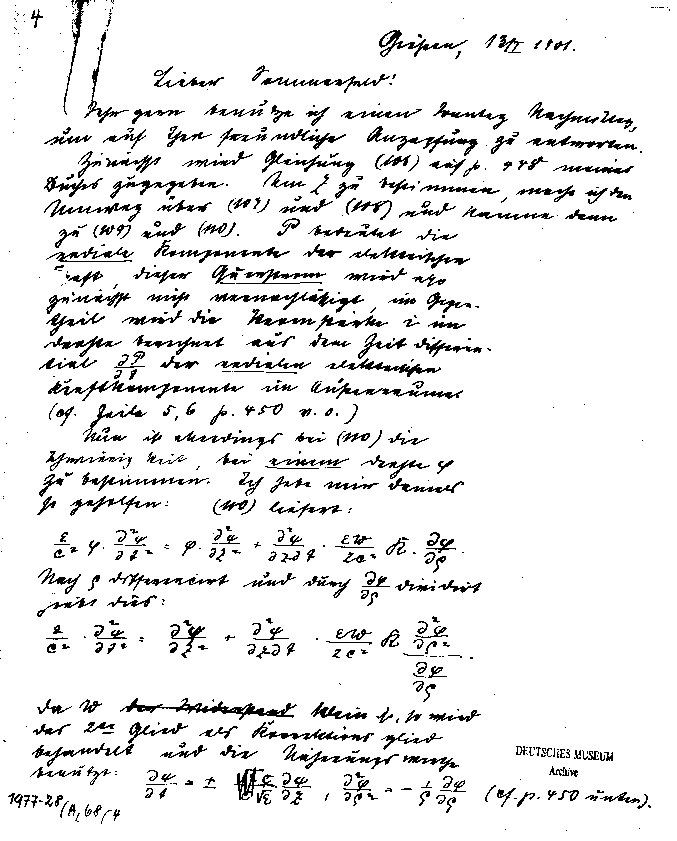 4
Gießen, 13/I 1901.
Lieber Sommerfeld!
Sehr gern benutze ich einen Sonntag Nachmittag,
um auf Ihre freundliche Anzapfung zu antworten.
Zunächst wird Gleichung (106) auf p. 448 meines
Buches zugegeben. Um Z zu bestimmen, mache ich den
Umweg über (107) und (108) und komme dann
zu (109) und (110). P bedeutet die
radiale Komponente der elektrischen
Kraft, dieser Querstrom wird also
zunächst nicht vernachlässigt, im Gegen-
theil wird die Stromstärke i im
Drahte berechnet aus dem Zeit differen-
tial ∂P/∂t der radialen elektrischen
Kraftkomponente im Außenraume
(cf. Zeile 5,6 p. 450 v. o.)
Nun ist allerdings bei (110) die
Schwierigkeit, bei einem Drahte φ
zu bestimmen. Ich habe mir damals
so geholfen: (110) liefert:
ε/c² φ · ∂²φ/∂t² = φ · ∂²φ/∂z² + ∂²φ/∂z∂t · εw/2c² R · ∂φ/∂ρ.
Nach ρ differenzirt und durch ∂φ/∂ρ dividirt
giebt dies:
ε/c² · ∂²φ/∂t² = ∂²φ/∂z² + ∂²φ/∂z∂t · εw/2c² R (∂²φ/∂ρ²)/(∂φ/∂ρ).
Da W der Widerstand klein ist, so wird
das 2te Glied als Korrektionsglied
behandelt und die Näherungswerthe
benutzt: ∂φ/∂t = ± c/√ε ∂φ/∂z, ∂²φ/∂ρ² = − 1/ρ ∂φ/∂ρ (cf. p. 450 unten).
DEUTSCHES MUSEUM
Archive
1977-28/A,68/4